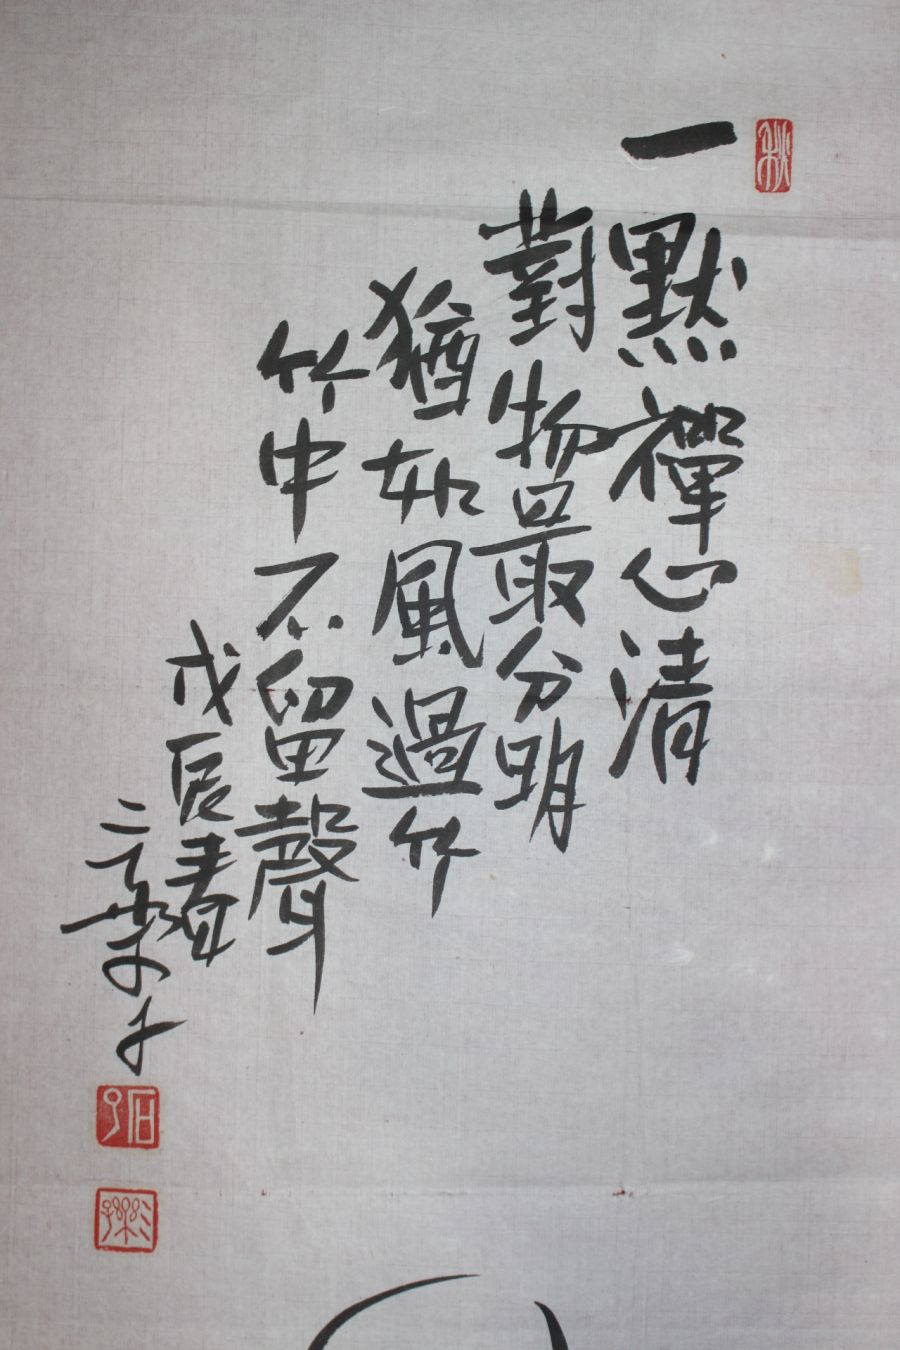 一黙禪心清
對物最分明
猶如風過竹
竹中不留聲
戊辰
秋